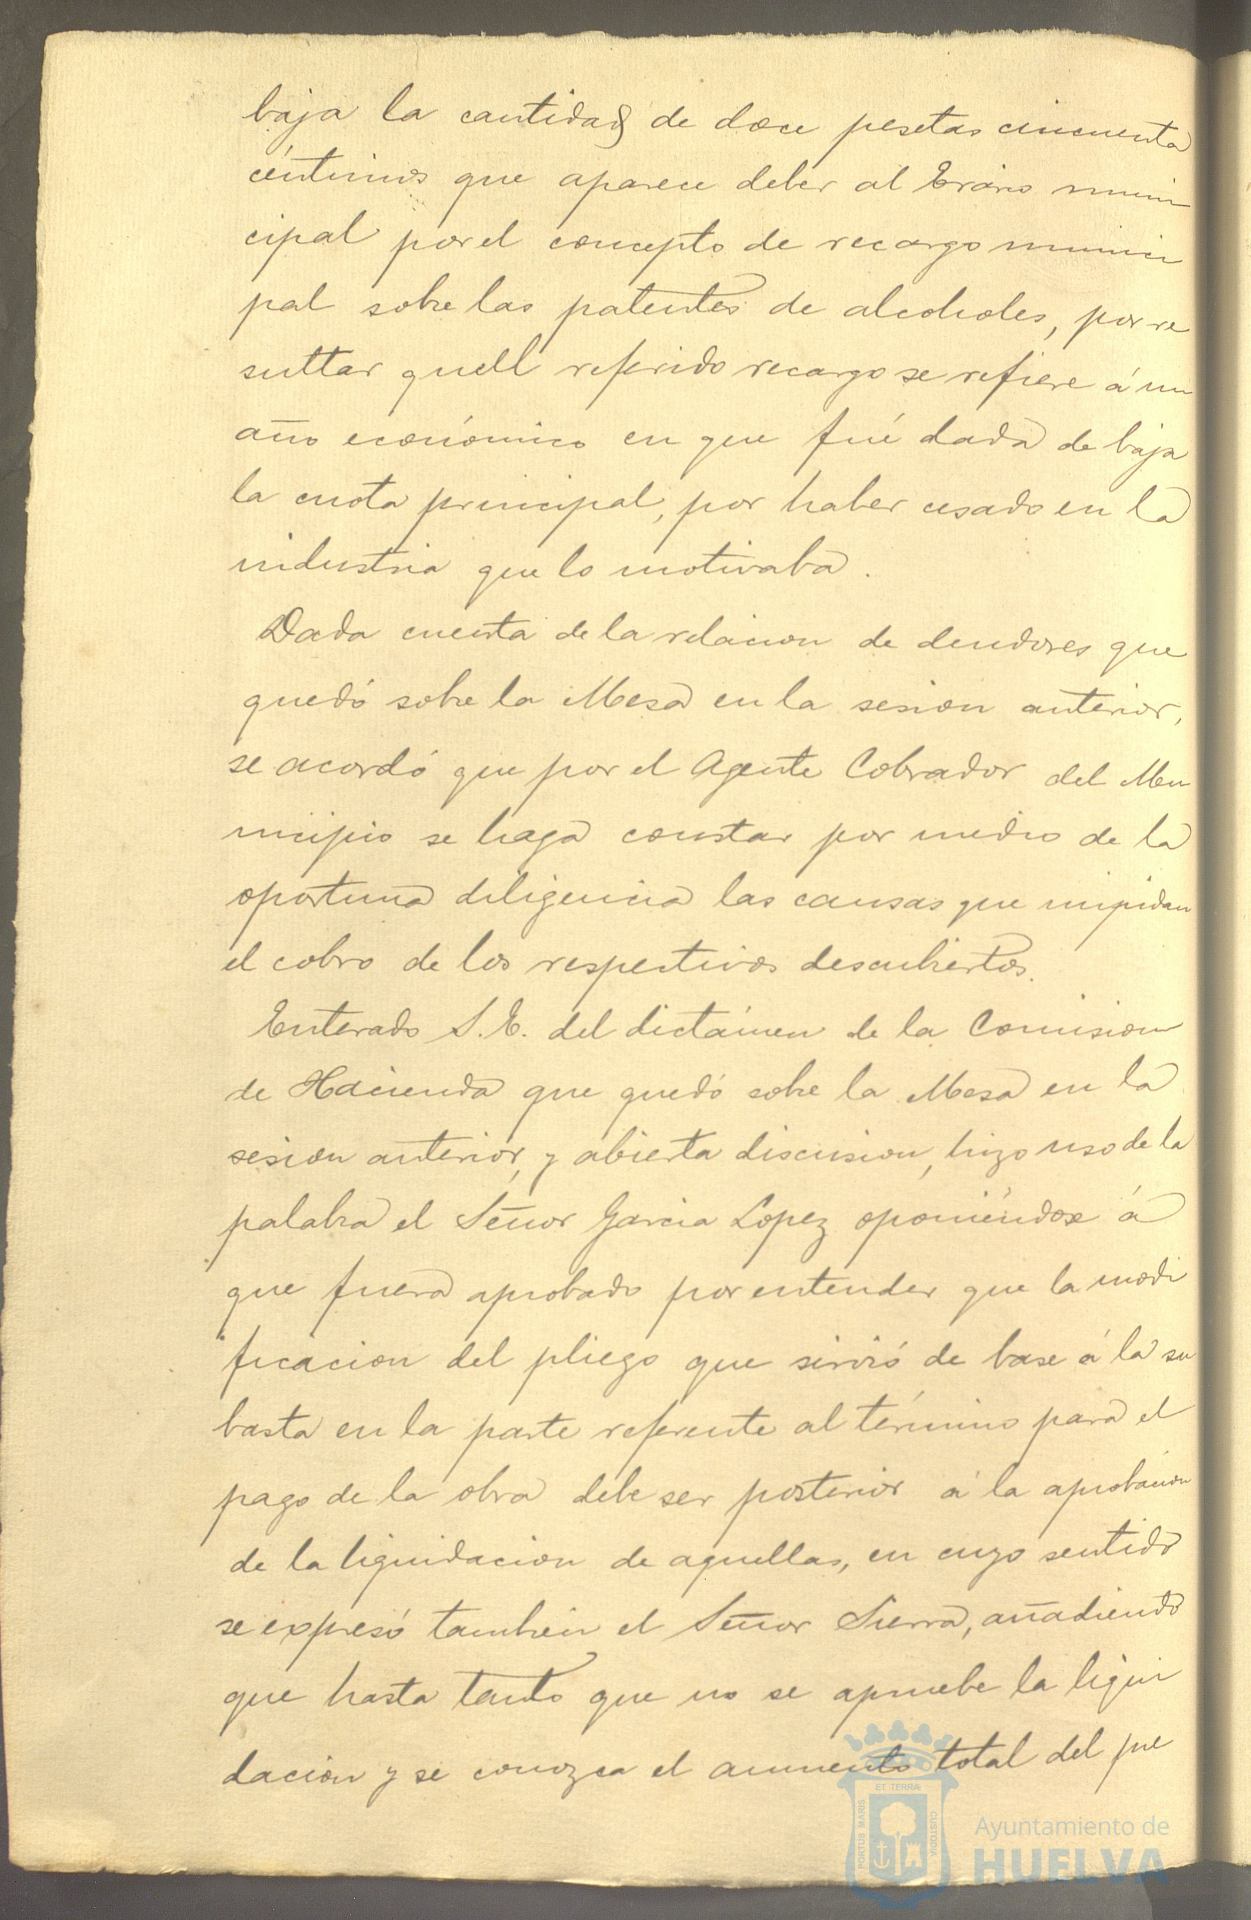 baja la cantidad de doce pesetas cincuenta
céntimos que aparece deber al Erario muni
cipal por el concepto de recargo munici
pal sobre las patentes de alcoholes, por re
sultar quell referido recargo se refiere á un
año económico en que fué dada de baja
la cuota principal, por haber cesado en la
industria que lo motivaba.
Dada cuenta de la relacion de deudores que
quedó sobre la Mesa en la sesion anterior,
se acordó que por el Agente Cobrador del Mu
nicipio se haga constar por medio de la
oportuna diligencia las causas que impidan
el cobro de los respectivos descubiertos.
Enterado S.E. del dictámen de la Comision
de Hacienda que quedó sobre la Mesa en la
sesion anterior, y abierta discusion, hizo uso de la
palabra el Señor Garcia Lopez oponiéndose á
que fuera aprobado por entender que la modi
ficacion del pliego que sirvió de base á la su
basta en la parte referente al término para el
pago de la obra debe ser posterior á la aprobacion
de la liquidacion de aquellas, en cuyo sentido
se expresó tambien el Señor Sierra, añadiendo
que hasta tanto que no se apruebe la liqui
dacion y se conozca el aumento total del pre
ET TERRÆ
PORTUS MARIS
CUSTODIA
Ayuntamiento de
HUELVA